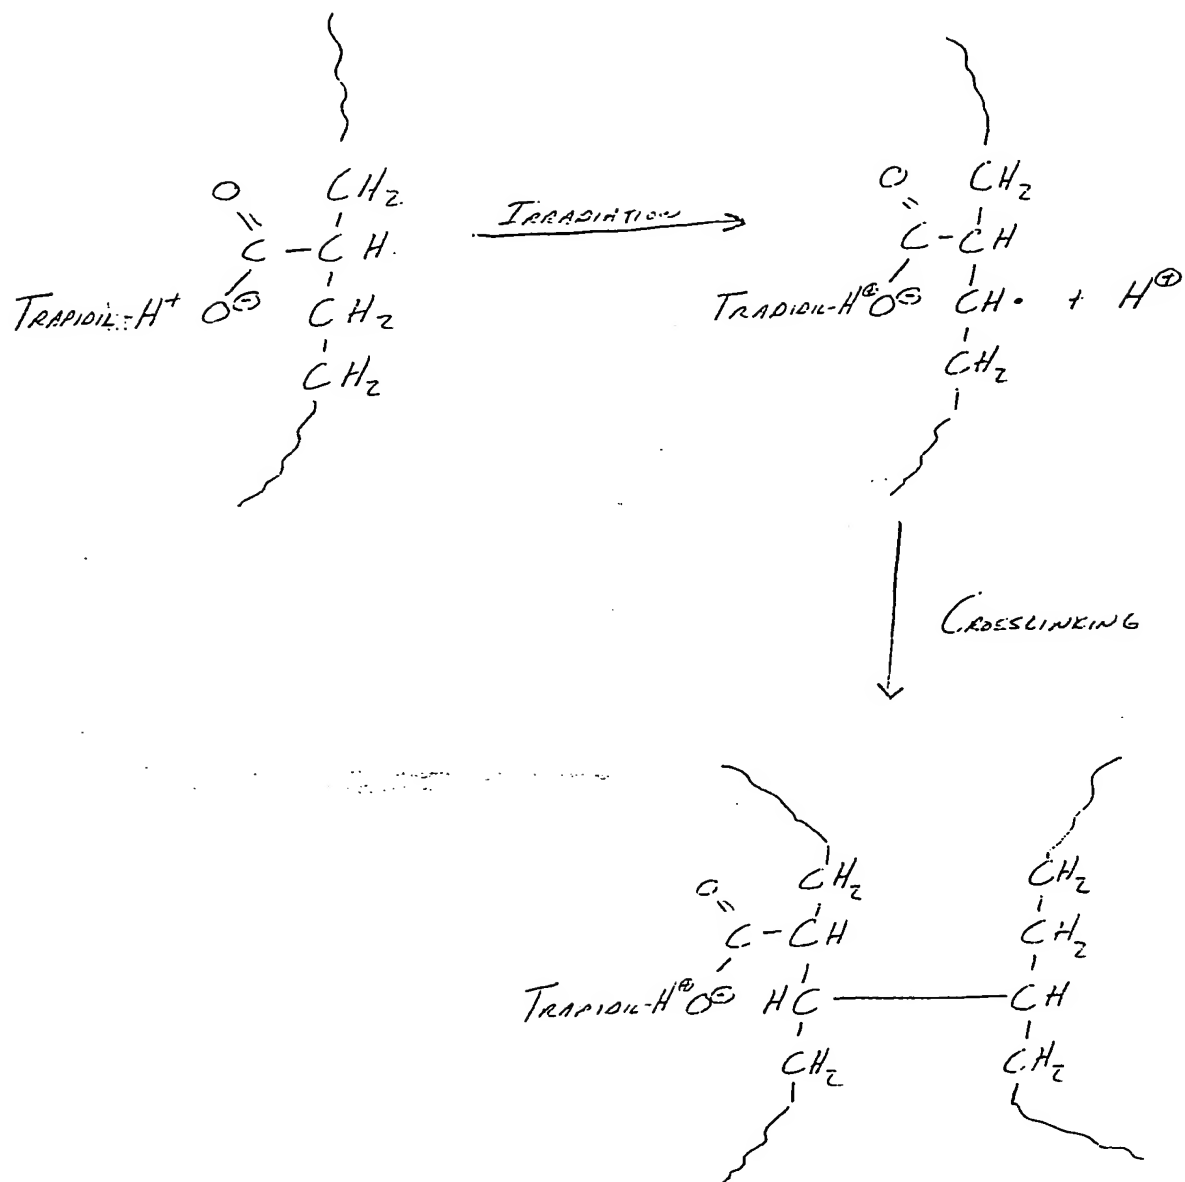 O CH₂
C – CH
TRAPIDIL-H⁺ O⊖ CH₂
CH₂
IRRADIATION
O CH₂
C – CH
TRAPIDIL-H⊕ O⊖ CH• + H⊕
CH₂
CROSSLINKING
O CH₂ CH₂
C – CH CH₂
TRAPIDIL-H⊕ O⊖ HC CH
CH₂ CH₂